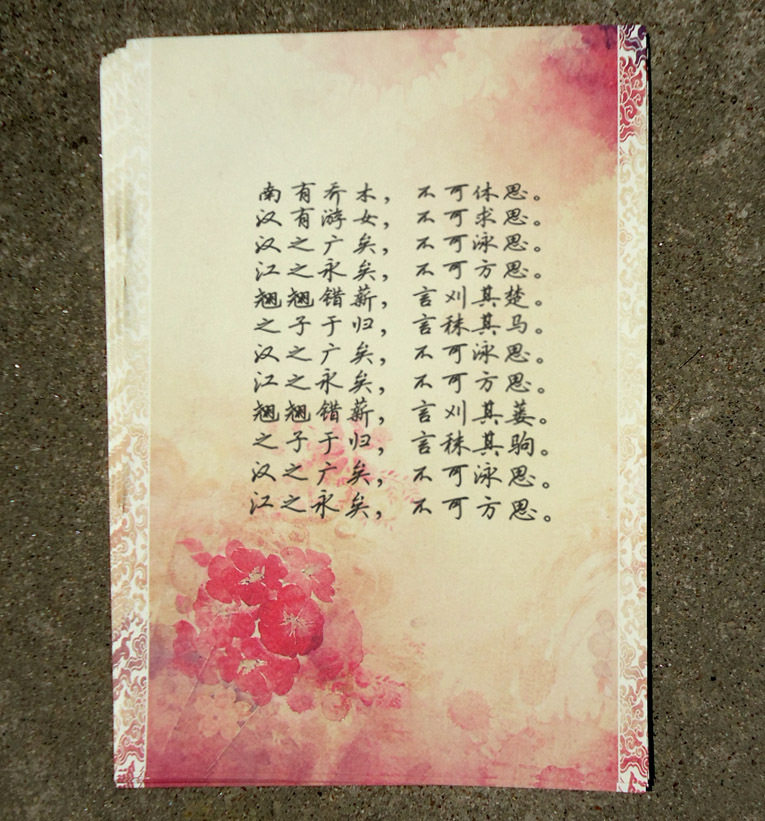 南有乔木，不可休思。
汉有游女，不可求思。
汉之广矣，不可泳思。
江之永矣，不可方思。
翘翘错薪，言刈其楚。
之子于归，言秣其马。
汉之广矣，不可泳思。
江之永矣，不可方思。
翘翘错薪，言刈其蒌。
之子于归，言秣其驹。
汉之广矣，不可泳思。
江之永矣，不可方思。